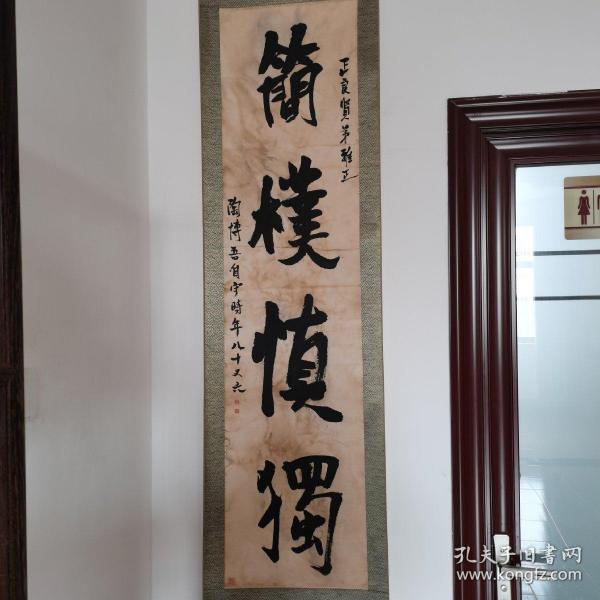 正良賢弟雅正
簡樸慎獨
陶博吾自字時年八十又六
孔夫子旧書网
www.kongfz.com